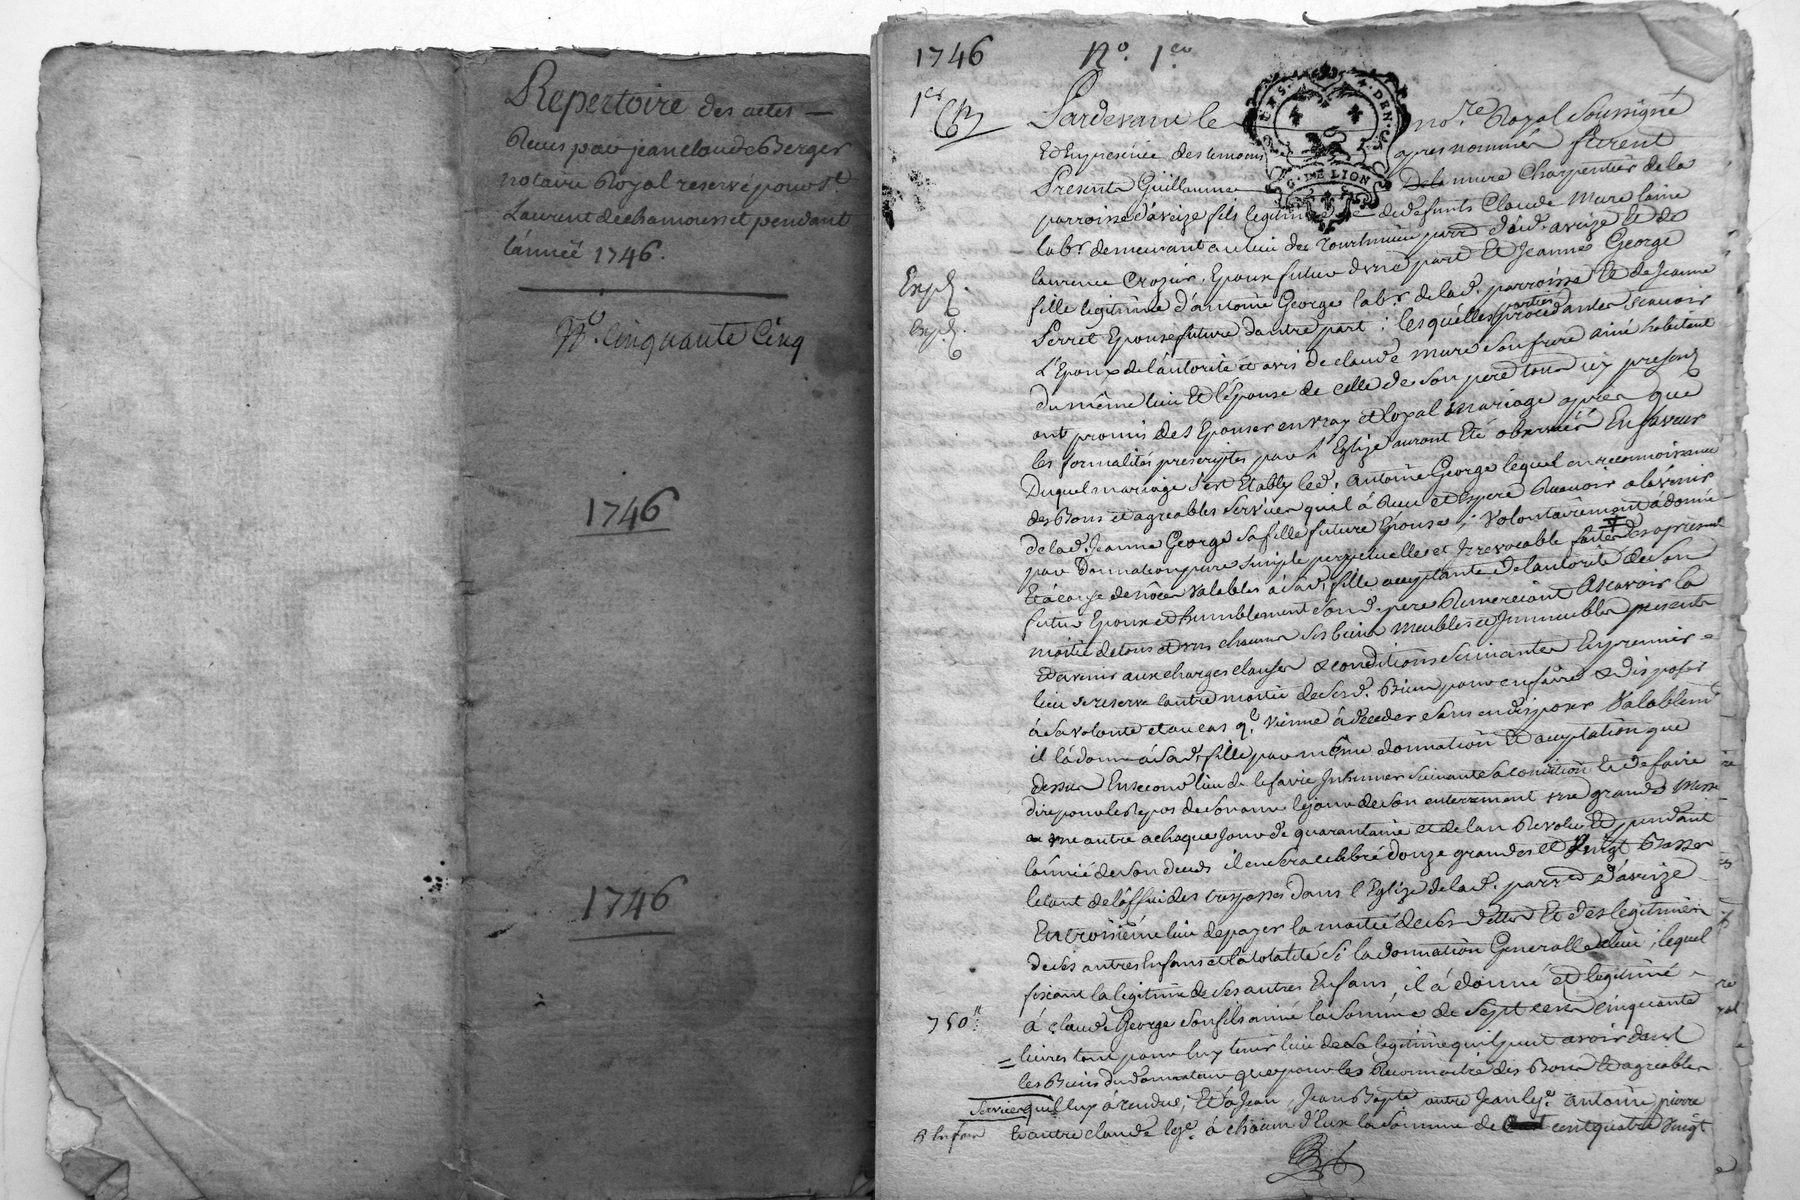 Repertoire des actes —
Recus par jean claude Berger
notaire Royal reservé pour St.
Laurent de chamousset pendant
l'année 1746.
No. Cinquante Cinq
1746
1746
1746 No. 1er
1er
Pardevant le nore. Royal Soussigné
Et En presence des temoins apres nommés furent
Presents Guillaume Delamure Charpentier de la
parroisse d'aveize fils legitime de defunts Claude Mure laine
labr. demeurant au lieu de parre. d'aveize Et de
laurence Crozier, Epoux futur d'une part Et Jeanne George
Expé.
fille legitime d'antoine George labr. de lad. parroisse Et de Jeanne
Expé.
Perret Epouse future dautre part ; lesquelles parties procedantes scavoir
L'Epoux de l'autorité et avis de claude Mure son frere ainé habitant
du même lieu Et l'épouse de celle de son pere tous icy presens
ont promis de s'Epouser en vray et loyal mariage apres que
les formalités prescriptes par l'Eglize auront Eté observées En faveur
Duquel mariage s'est Etably led. antoine George lequel en reconnoissance
des Bons et agreables services quil à Recu et Espere Recevoir à l'avenir
de lad. Jeanne George sa fille future Epouse, volontairement à donné
par Donnation pure simple perpetuelle et Irrevocable faite des apresent
Et à cause de nôces valables à sad. fille acceptante de l'autorité de son
futur Epoux et humblement sond. pere Remerciant Ascavoir la
moitié de tous et uns chacuns ses biens Meubles et Immeubles presents
Et avenir aux charges clauses & conditions suivantes En premier
lieu se reserve l'autre moitié de sesd. Biens pour en faire & disposer
à sa volonté et au cas qe. vienne à deceder sans en disposer Valablemt.
il la donne à sad. fille par même donnation Et acceptation que
dessus En second lieu de le faire Inhumer suivant sa condition Et de faire
dire pour le Repos de son ame le jour de son enterrement une grande Messe
une autre à chaque jour de quarantaine et de l'an Revolu Et pendant
l'année de son deceds il en sera celebré douze grandes et Vingt Basses
le tout de l'office des trepassés dans l'Eglize de lad. parre. d'aveize
En troisième lieu de payer la moitié de ses dettes Et des legitimes
de ses autres Enfans et la totalité si la donnation Generalle a lieu ; lequel
fixant la legitime de ses autres Enfans, il à donné et legitimé
750tt à claude George son fils ainé la somme de sept cens cinquante
livres tant pour luy tenir lieu de la legitime quil peut avoir dans
les Biens du donnateur que pour les Reconnoitre des Bons Et agreables
services quil luy à rendus ; Et à Jean, Jean Bapte. autre Jean lege. antoine pierre
8 Enfans Et autre claude lege. à chacun d'Eux la somme de cent quatre vingt